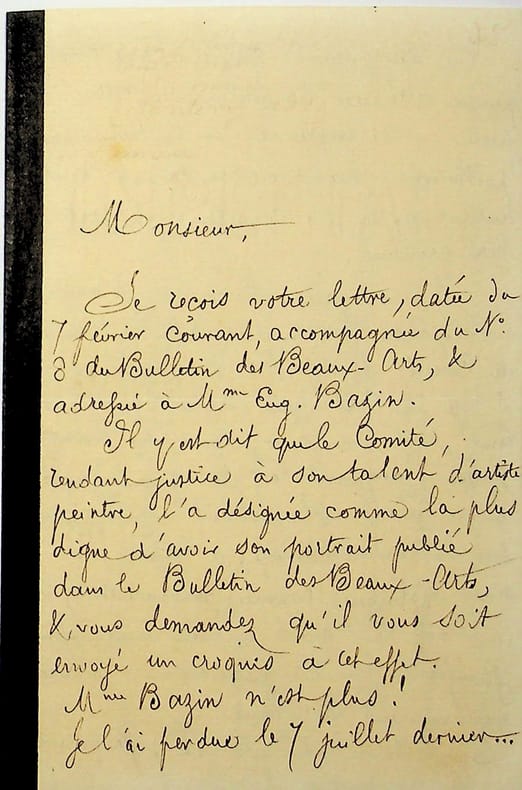 Monsieur,
Je reçois votre lettre, datée du
7 février courant, accompagnée du N°
8 du Bulletin des Beaux-Arts, &
adressée à Mme Eug. Bazin.
Il y est dit que le Comité,
rendant justice à son talent d'artiste
peintre, l'a désignée comme la plus
digne d'avoir son portrait publié
dans le Bulletin des Beaux-Arts,
&, vous demandez qu'il vous soit
envoyé un croquis à cet effet.
Mme Bazin n'est plus !
Je l'ai perdue le 7 juillet dernier...